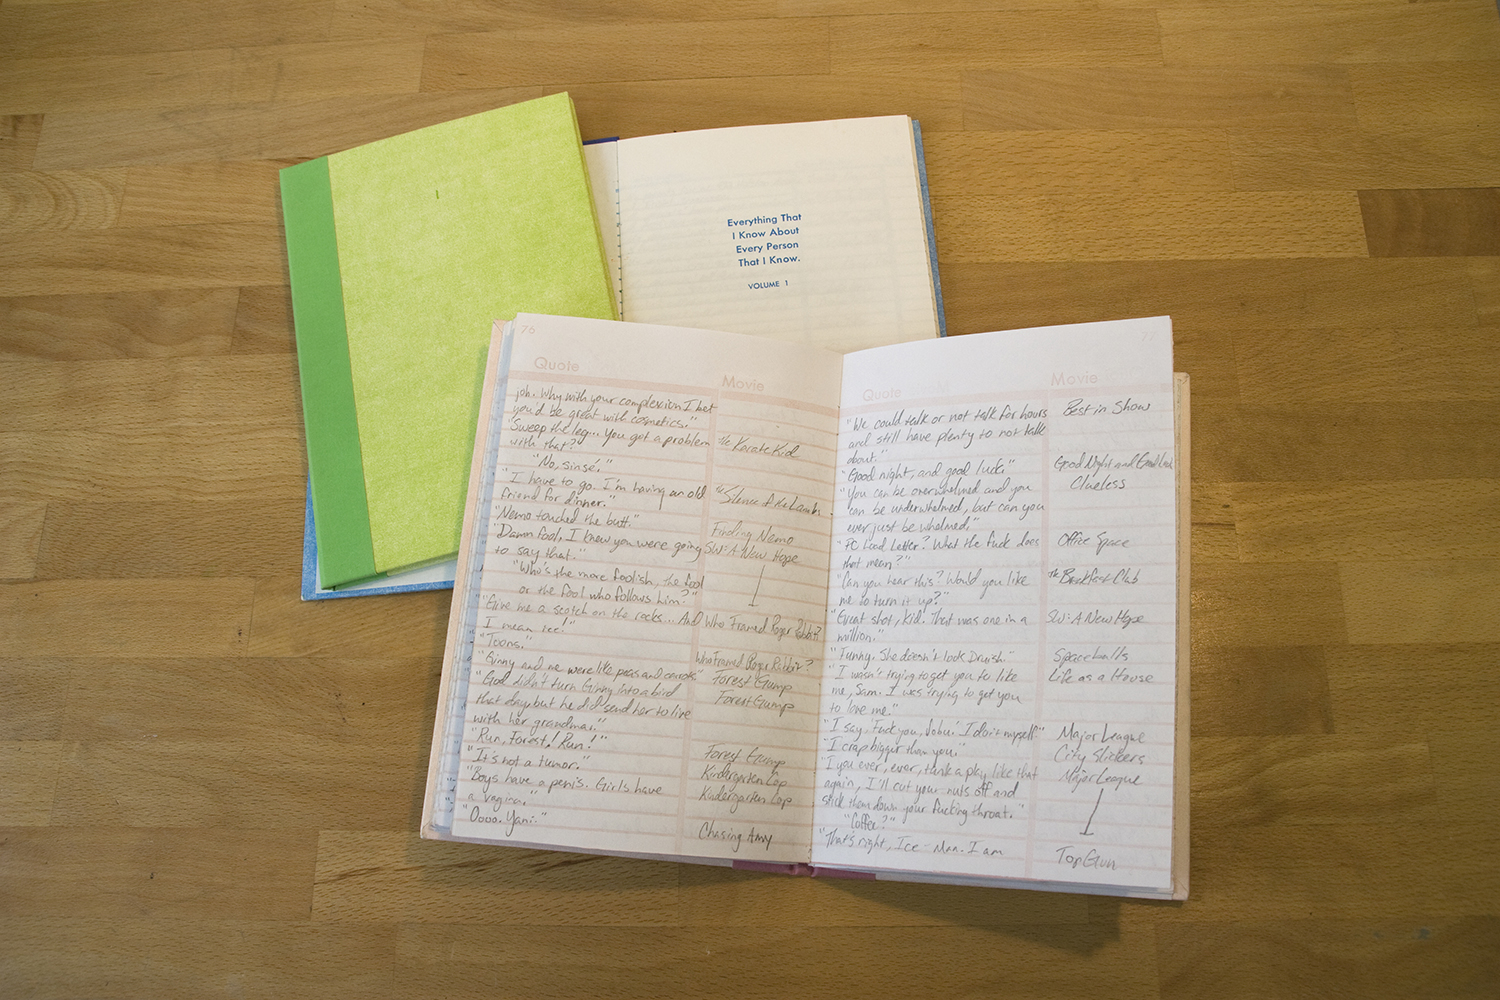 1
Everything That
I Know About
Every Person
That I Know.
VOLUME 1
76
Quote
Movie
job. Why with your complexion I bet
you'd be great with cosmetics."
"Sweep the leg... You got a problem
the Karate Kid
with that?"
"No, sinsé."
"I have to go. I'm having an old
the Silence of the Lambs
friend for dinner."
"Nemo touched the butt."
Finding Nemo
"Damn fool, I knew you were going
SW: A New Hope
to say that."
"Who's the more foolish, the fool
or the fool who follows him?"
"Give me a scotch on the rocks... And
Who Framed Roger Rabbit?
I mean ice!"
"Toons."
Who Framed Roger Rabbit?
"Ginny and me were like peas and carrots"
Forest Gump
"God didn't turn Ginny into a bird
Forest Gump
that day, but he did send her to live
with her grandma."
"Run, Forest! Run!"
Forest Gump
"It's not a tumor."
Kindergarten Cop
"Boys have a penis. Girls have
Kindergarten Cop
a vagina."
"Oooo. Yani."
Chasing Amy
77
Quote
Movie
"We could talk or not talk for hours
Best in Show
and still have plenty to not talk
about."
"Good night, and good luck."
Good Night and Good Luck
"You can be overwhelmed and you
Clueless
can be underwhelmed, but can you
ever just be whelmed."
"PC Load Letter? What the fuck does
Office Space
that mean?"
"Can you hear this? Would you like
the Breakfast Club
me to turn it up?"
"Great shot, kid. That was one in a
SW: A New Hope
million."
"Funny. She doesn't look Druish."
Spaceballs
"I wasn't trying to get you to like
Life as a House
me, Sam. I was trying to get you
to love me."
"I say 'Fuck you, Jobu.' I do it myself."
Major League
"I crap bigger than you."
City Slickers
"I you ever, ever, tank a play like that
Major League
again, I'll cut your nuts off and
stick them down your fucking throat."
"Coffee?"
"That's right, Ice - Man. I am
Top Gun